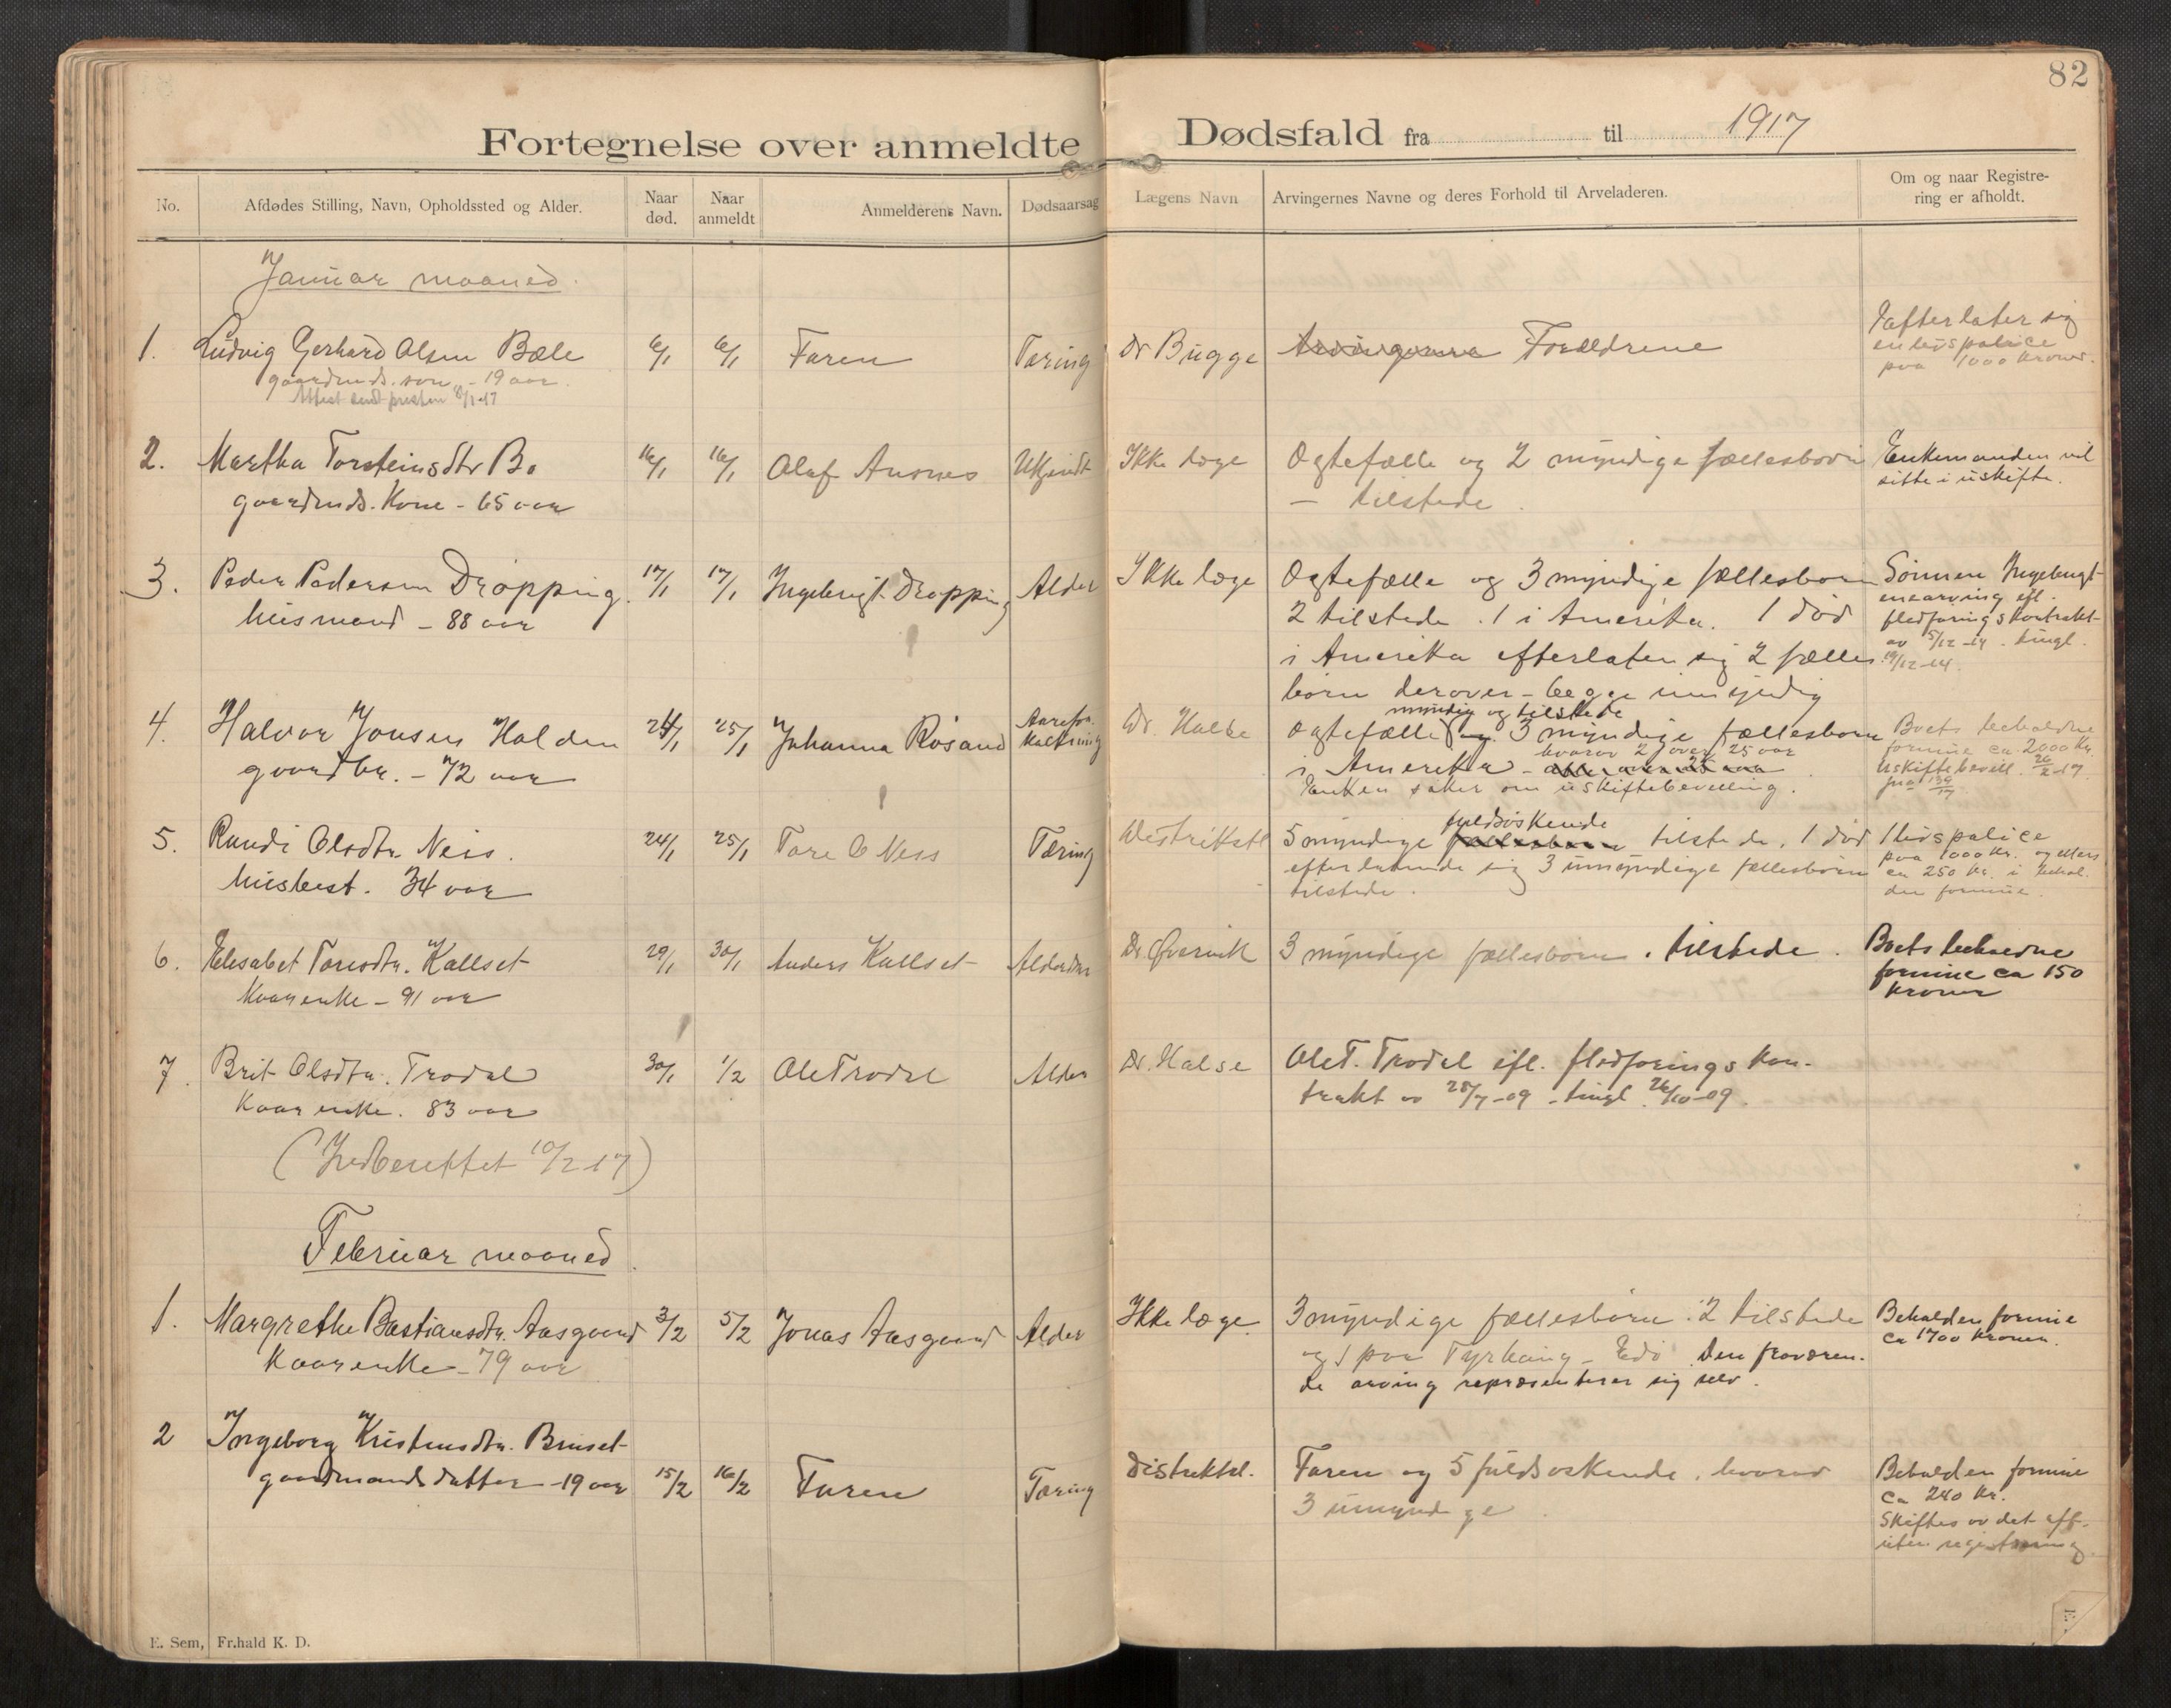 82
Fortegnelse over anmeldte Dødsfald fra til 1917
No. Afdødes Stilling, Navn, Opholdssted og Alder. Naar død. Naar anmeldt Anmelderens Navn. Dødsaarsag Lægens Navn Arvingernes Navne og deres Forhold til Arveladeren. Om og naar Registrering er afholdt.
Januar maaned.
1. Ludvig Gerhard Olsen Bæle 6/1 6/1 Faren Tæring Dr Bugge Forældrene
gaardmds. søn - 19 aar.
Attest sendt presten
efterlater sig
en livspolice
paa 1000 kroner.
2. Martha Torsteinsdtr Bø 16/1 16/1 Olaf Ausnes Ukjendt Ikke læge Ægtefælle og 2 myndige fællesbørn
gaardmds. Kone - 65 aar
- tilstede.
Enkemanden vil
sitte i uskifte.
3. Peder Pedersen Drøpping 17/1 17/1 Ingebrigt Drøpping Alder Ikke læge Ægtefælle og 3 myndige fællesbørn
husmand - 88 aar
2 tilstede. 1 i Amerika. 1 død
i Amerika efterlaten sig 2 fælles
børn derover - begge umyndig
Sønnen Ingebrigt
enearving efl.
fledføringskontrakt
av 5/12-14. tingl.
19/12-14.
4. Halvor Jonsen Halden 24/1 25/1 Johanna Røsand Dr. Halse
gaardbr. - 72 aar
myndig og tilstede
Ægtefælle og 3 myndige fællesbørn
hvorav 2 over 25 aar
i Amerika -
Enken søker om uskiftebevilling.
Boets beholdne
formue ca. 2000 Kr.
Uskiftebevill. 26/2-17.
5. Randi Olsdtr. Neis. 24/1 25/1 Tore O Ness Tæring Distriktsl
husbest. 34 aar
fuldsøskende
5 myndige tilstede, 1 død
efterlatende sig 3 umyndige fællesbørn
tilstede.
1 livspolice
paa 1000 Kr. og ellers
ca 250 Kr. i behol-
den formue.
6. Elisabet Toresdtr. Kallset 29/1 30/1 Anders Kallset Dr. Øvervik 3 myndige fællesbørn. tilstede.
Kaarenke - 91 aar
Boets beholdne
formue ca 150
kroner
7. Brit Olsdtr. Trodal 30/1 1/2 Ole Trodal Alder Dr. Halse Ole T. Trodal efl. fledføringskon-
Kaarenke. 83 aar
trakt av 28/7-09 - tingl. 26/10-09.
(Indberettet 10/2 17)
Februar maaned.
1. Margrethe Bastiansdtr. Aasgaard 3/2 5/2 Jonas Aasgaard Alder Ikke læge 3 myndige fællesbørn. 2 tilstede
Kaarenke - 79 aar
og 1 paa Tyrhaug - Edø. Den fraværen-
de arving repræsenterer sig selv.
Beholden formue
ca 1700 Kroner.
2 Ingeborg Kristensdtr. Bruset
gaardmands datter - 19 aar 15/2 16/2 Faren Tæring Distriktsl. Faren og 5 fuldsøskende, hvorav
3 umyndige.
Beholden formue
ca 240 Kr.
Skiftes av det off.
uten registrering
E. Sem, Fr.hald K. D.